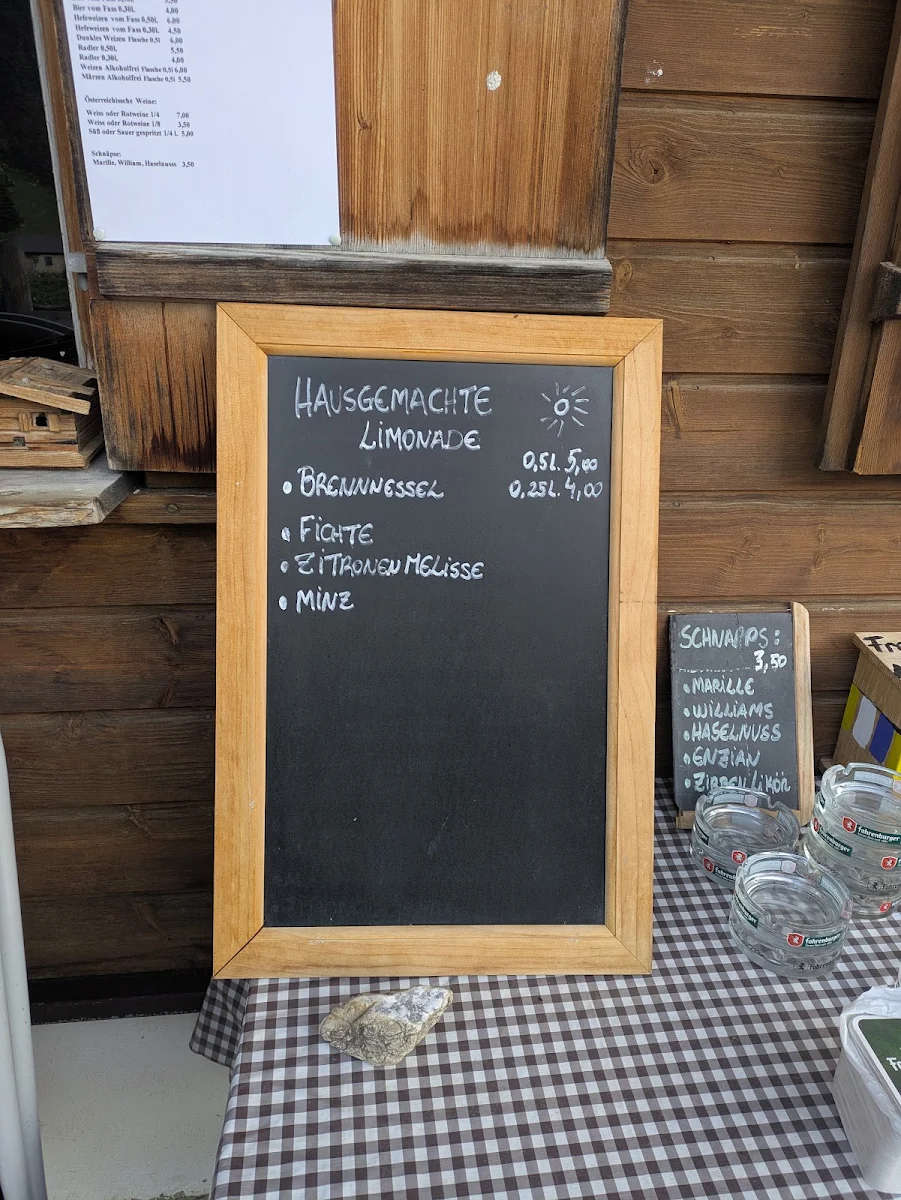 Bier vom Fass 0,30L 4,00
Hefeweizen vom Fass 0,50L 6,00
Hefeweizen vom Fass 0,30L 4,50
Dunkles Weizen Flasche 0,5l 6,00
Radler 0,50L 5,50
Radler 0,30L 4,00
Weizen Alkoholfrei Flasche 0,5l 6,00
Märzen Alkoholfrei Flasche 0,5l 5,50
Österreichische Weine:
Weiss oder Rotweine 1/4 7,00
Weiss oder Rotweine 1/8 3,50
Süß oder Sauer gespritzt 1/4 l. 5,00
Schnäpse:
Marille, William, Haselnusss 3,50
HAUSGEMACHTE
LIMONADE
0,5L. 5,00
• BRENNNESSEL 0,25L. 4,00
• FICHTE
• ZITRONENMELISSE
• MINZ
SCHNAPPS:
3,50
• MARILLE
• WILLIAMS
• HASELNUSS
• ENZIAN
• ZIRBENLIKÖR
Fohrenburger
Fohrenburger
Fohrenburger